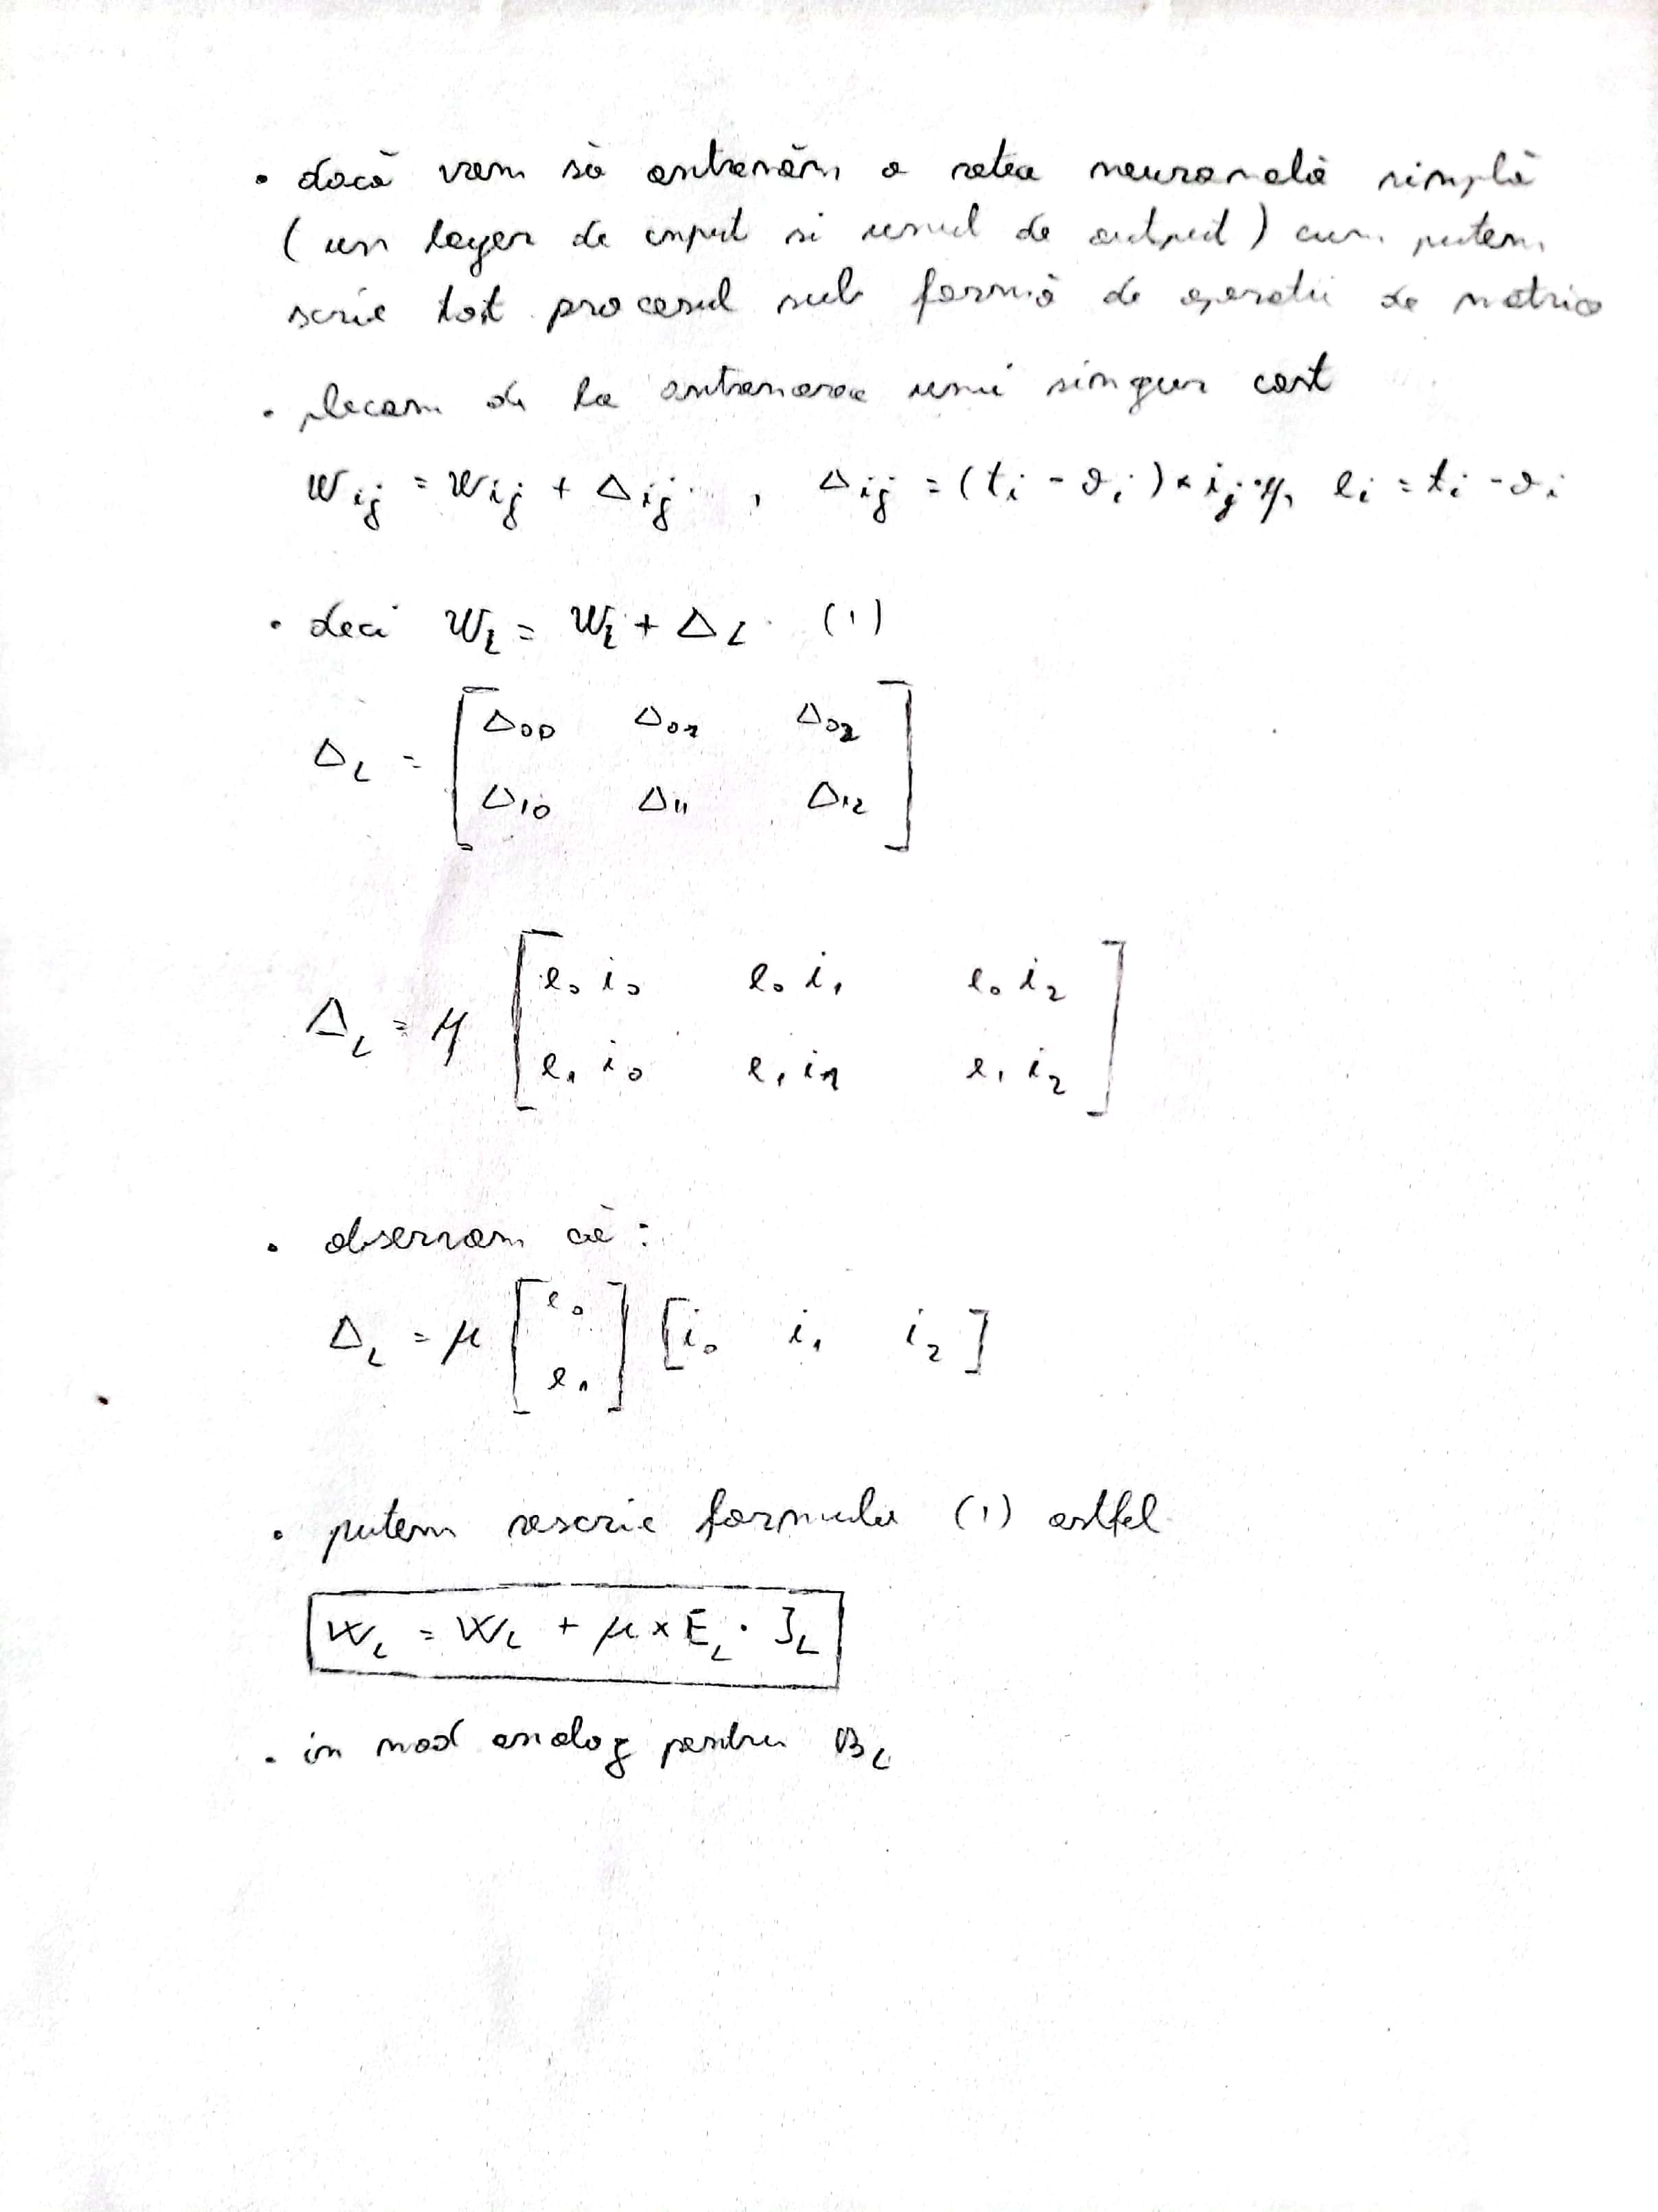 • dacă vrem să antrenăm o retea neuronală simplă
( un layer de input si unul de output ) cum putem
scrie tot procesul sub formă de operatii de matrice
• plecam de la antrenarea unui singur cost
Wij = Wij + Δij , Δij = (ti - oi) × ij · μ, ei = ti - oi
• deci WL = WL + ΔL (1)
ΔL = [ Δ00 Δ01 Δ02
Δ10 Δ11 Δ12 ]
ΔL = μ [ e0 i0 e0 i1 e0 i2
e1 i0 e1 i1 e1 i2 ]
• observam că :
ΔL = μ [ e0 e1 ] [ i0 i1 i2 ]
• putem rescrie formula (1) astfel
WL = WL + μ × EL · IL
• in mod analog pentru BL